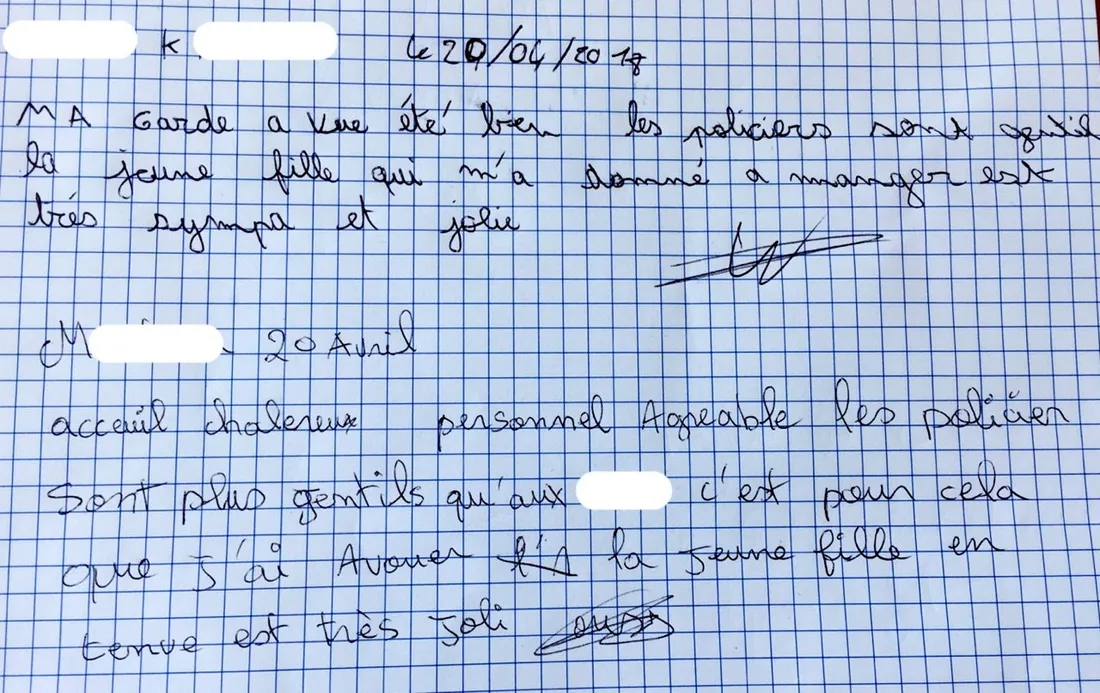 K
le 20/04/2018
MA Garde a vue été bien les policiers sont gentil
la jeune fille qui m'a donné a manger est
très sympa et jolie
M 20 Avril
acceuil chalereux personnel Agreable les policier
sont plus gentils qu'aux c'est pour cela
que j'ai Avouer la jeune fille en
tenue est très joli